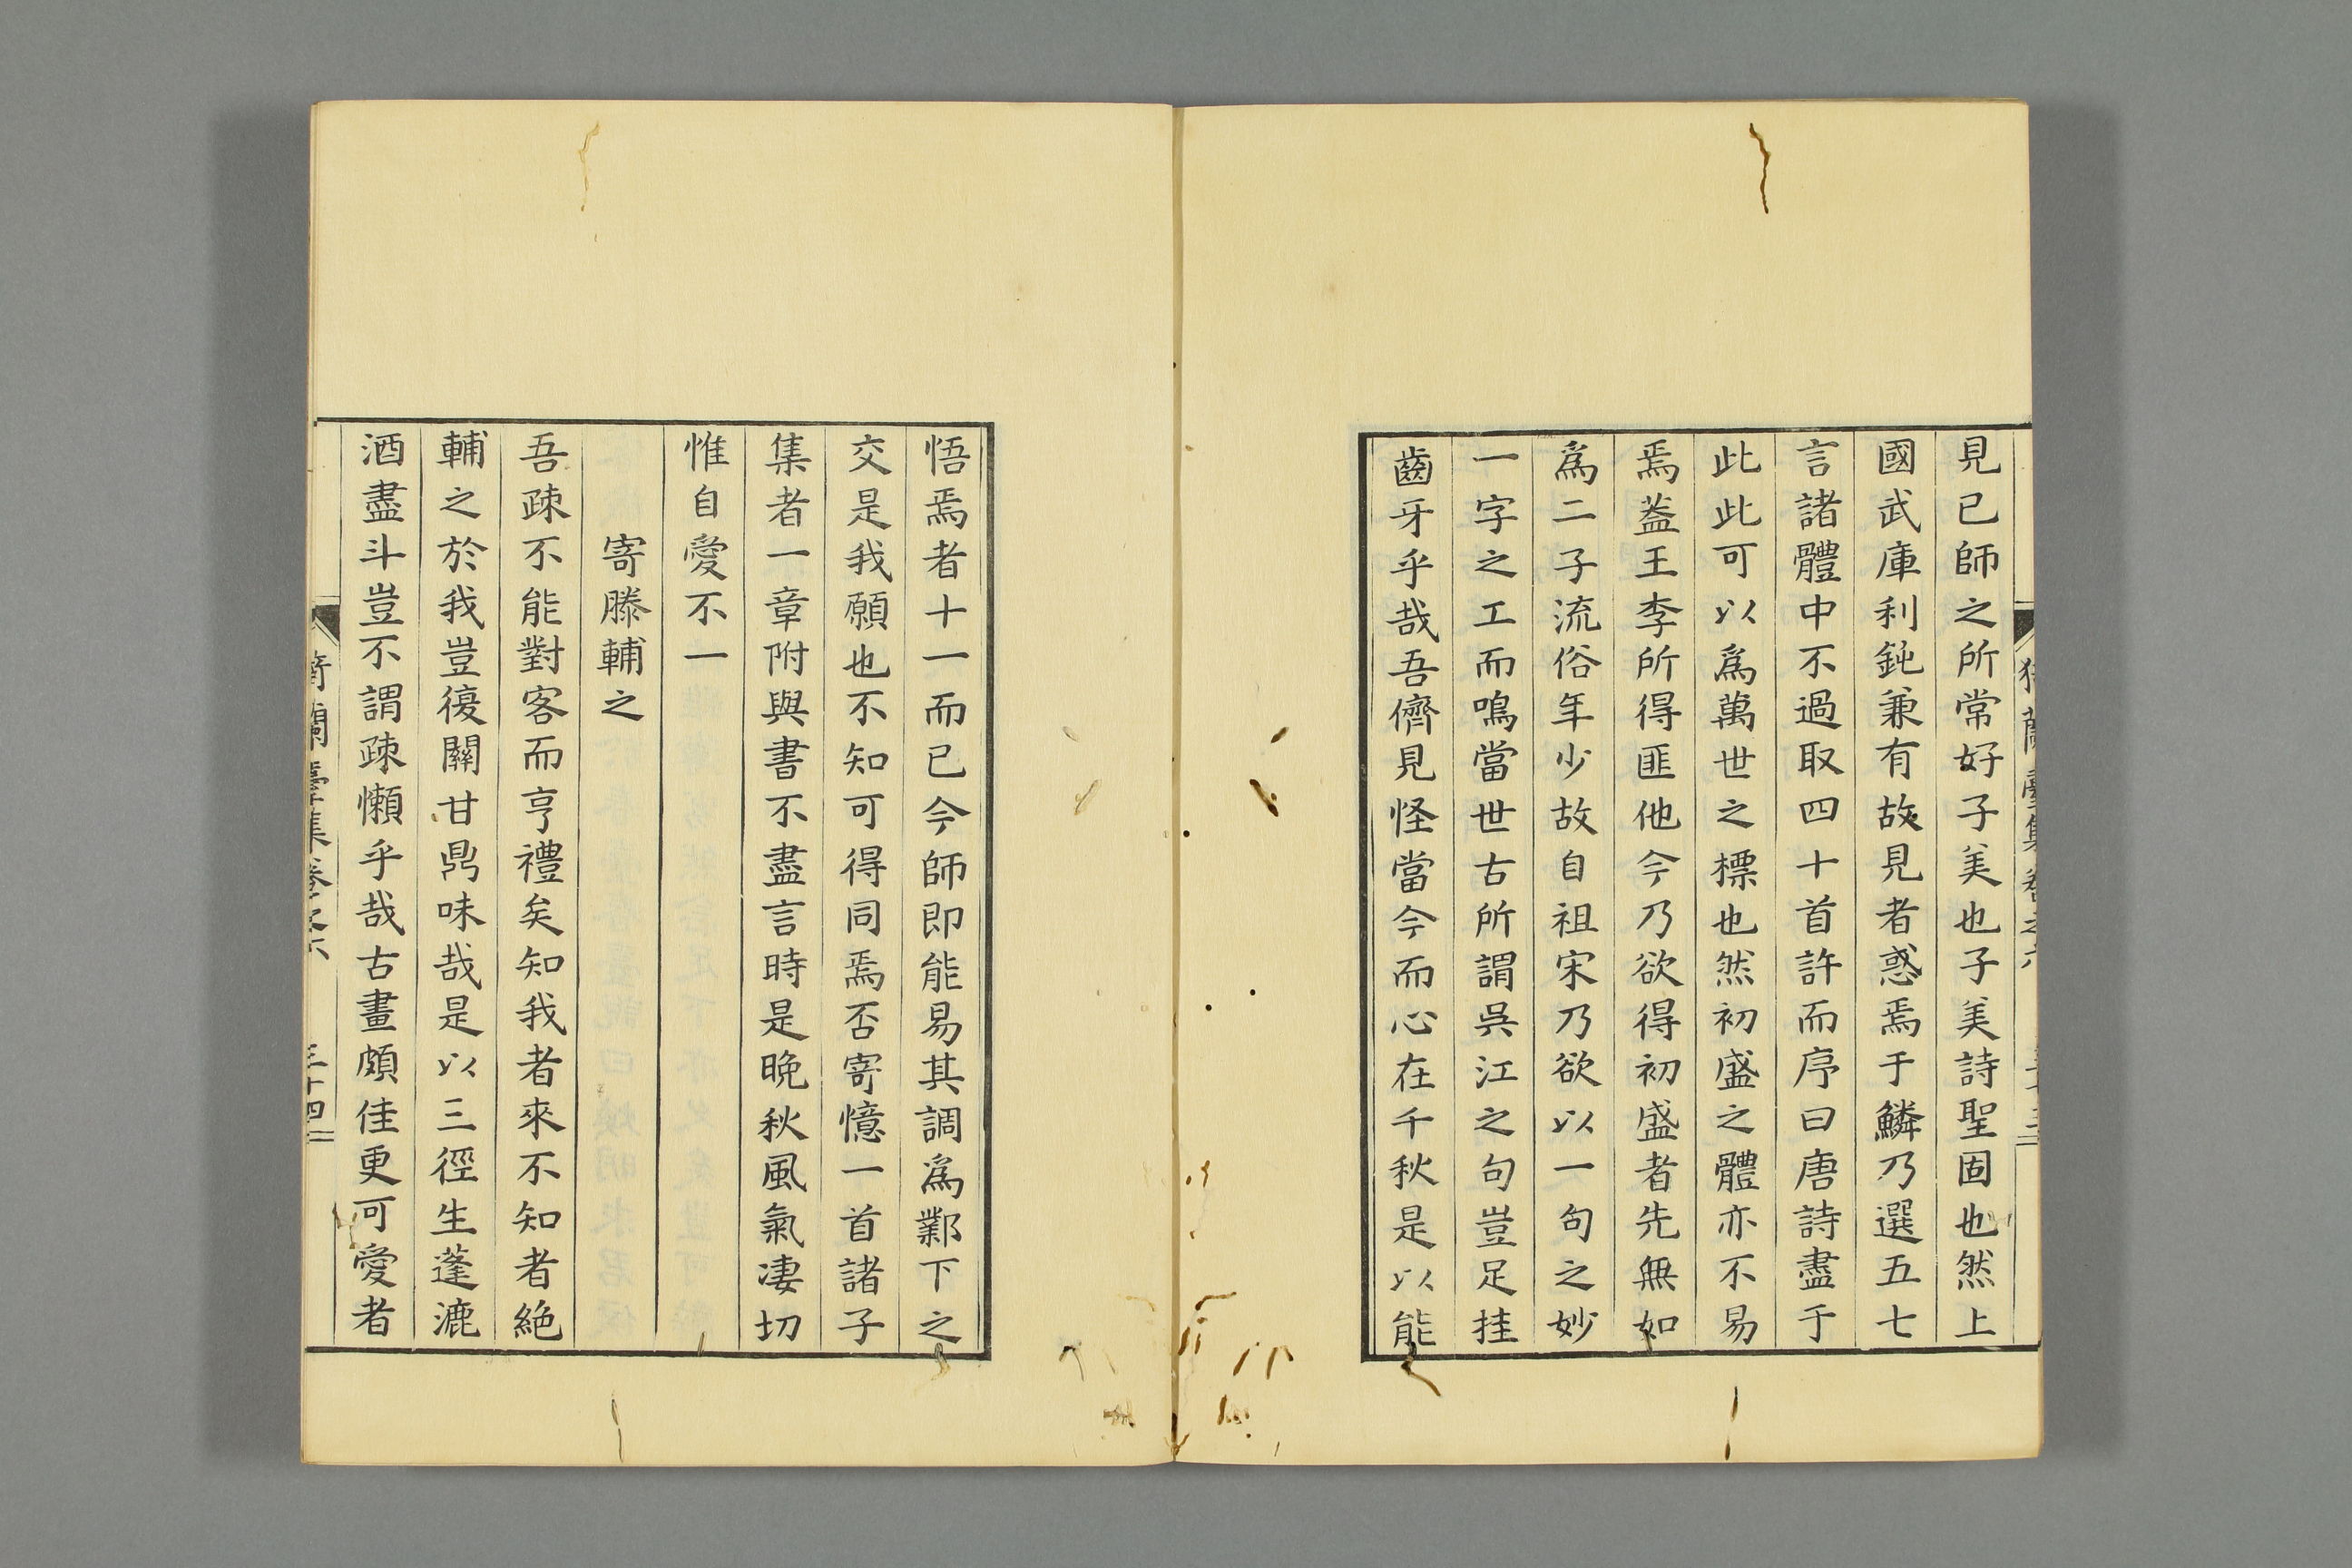 見已師之所常好子美也子美詩聖固也然上
國武庫利鈍兼有故見者惑焉于鱗乃選五七
言諸體中不過取四十首許而序曰唐詩盡于
此此可以爲萬世之標也然初盛之體亦不易
焉葢王李所得匪他今乃欲得初盛者先無如
爲二子流俗年少故自祖宋乃欲以一句之妙
一字之工而鳴當世古所謂吳江之句豈足挂
齒牙乎哉吾儕見怪當今而心在千秋是以能
悟焉者十一而已今師即能易其調爲鄴下之
交是我願也不知可得同焉否寄憶一首諸子
集者一章附與書不盡言時是晚秋風氣凄切
惟自愛不一
寄滕輔之
吾疎不能對客而亨禮矣知我者來不知者絶
輔之於我豈復關甘鼎味哉是以三徑生蓬漉
酒盡斗豈不謂疎懶乎哉古畫頗佳更可愛者
蘭臺集卷之六 三十四